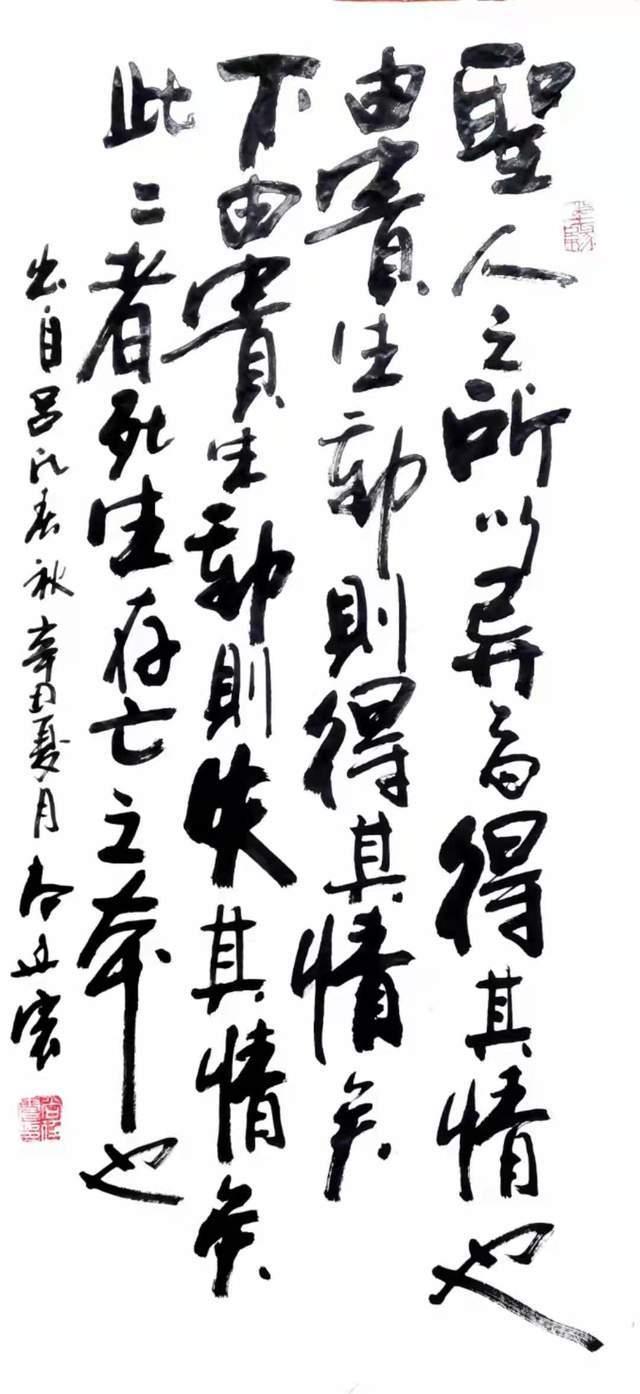 聖人之所以异者得其情也
由貴生動則得其情矣
不由貴生動則失其情矣
此二者死生存亡之本也
出自吕氏春秋辛丑夏月